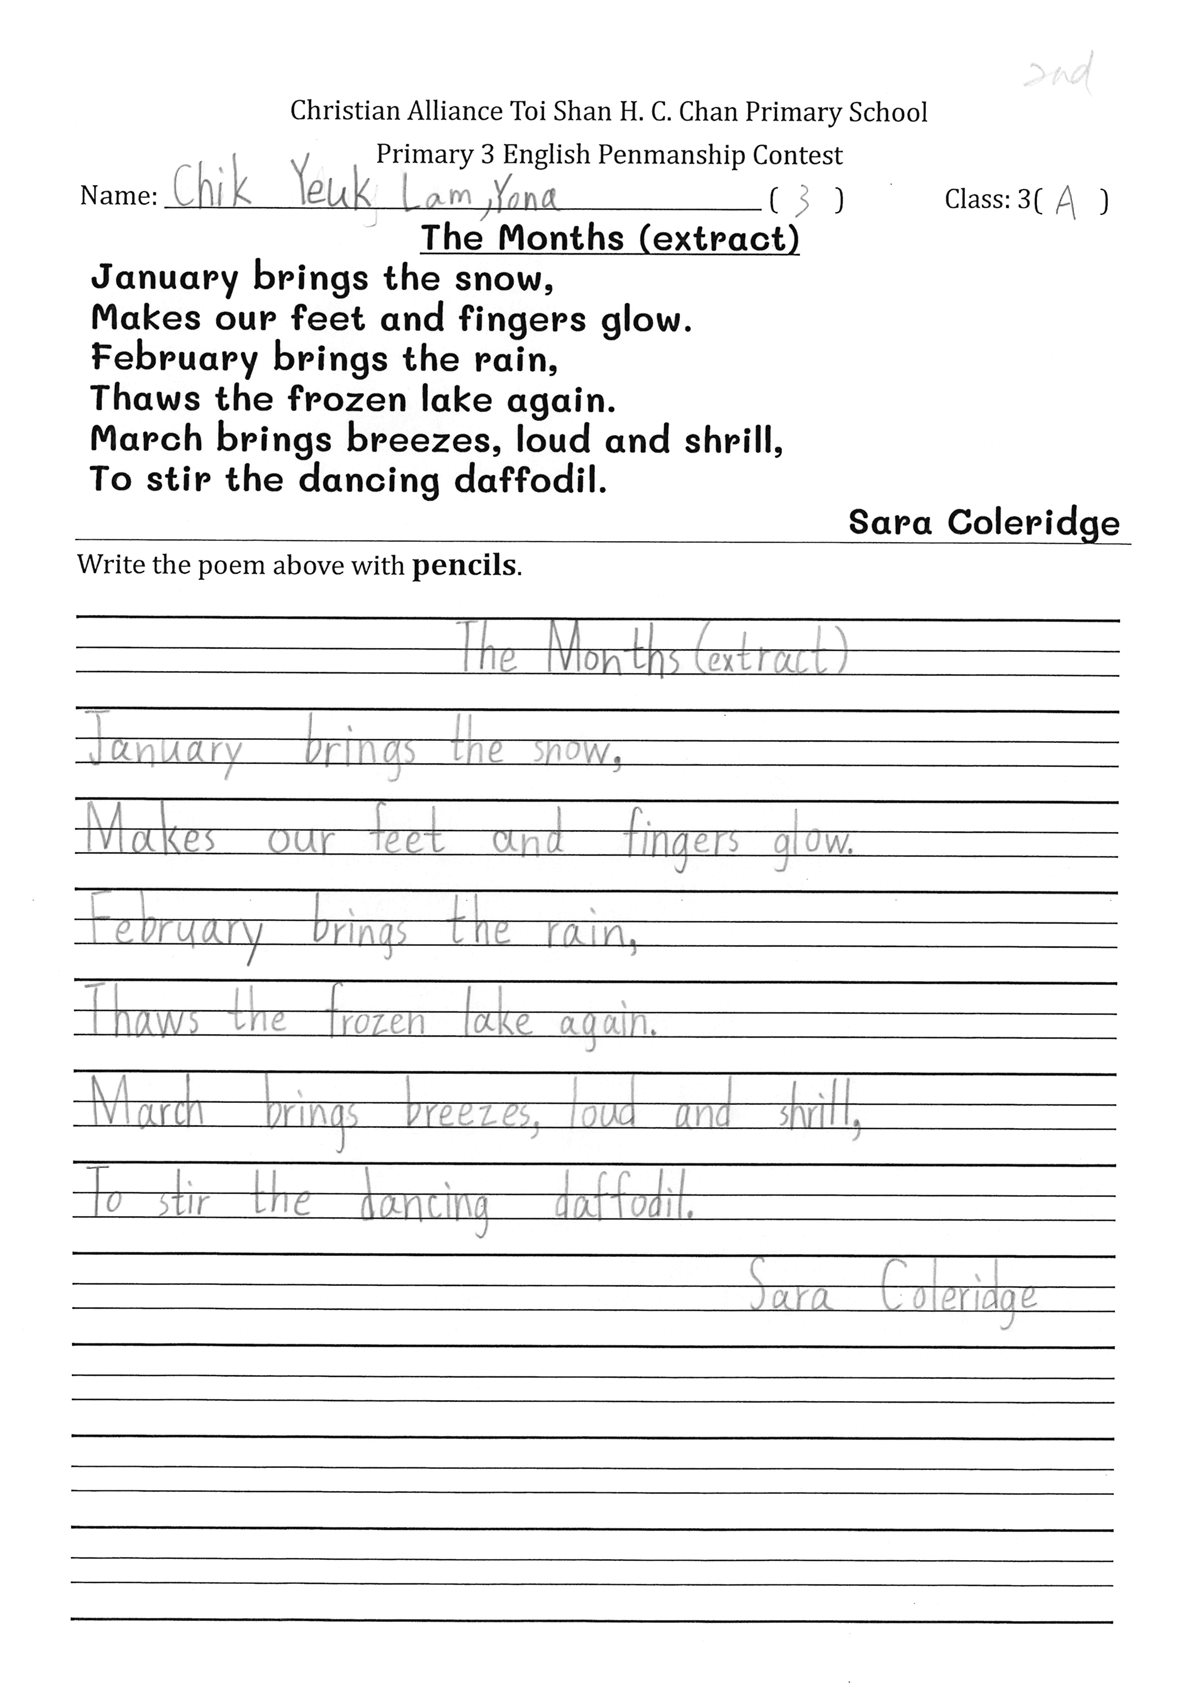 2nd
Christian Alliance Toi Shan H. C. Chan Primary School
Primary 3 English Penmanship Contest
Name: Chik Yeuk Lam, Yona ( 3 ) Class: 3( A )
The Months (extract)
January brings the snow,
Makes our feet and fingers glow.
February brings the rain,
Thaws the frozen lake again.
March brings breezes, loud and shrill,
To stir the dancing daffodil.
Sara Coleridge
Write the poem above with pencils.
The Months (extract)
January brings the snow,
Makes our feet and fingers glow.
February brings the rain,
Thaws the frozen lake again.
March brings breezes, loud and shrill,
To stir the dancing daffodil.
Sara Coleridge